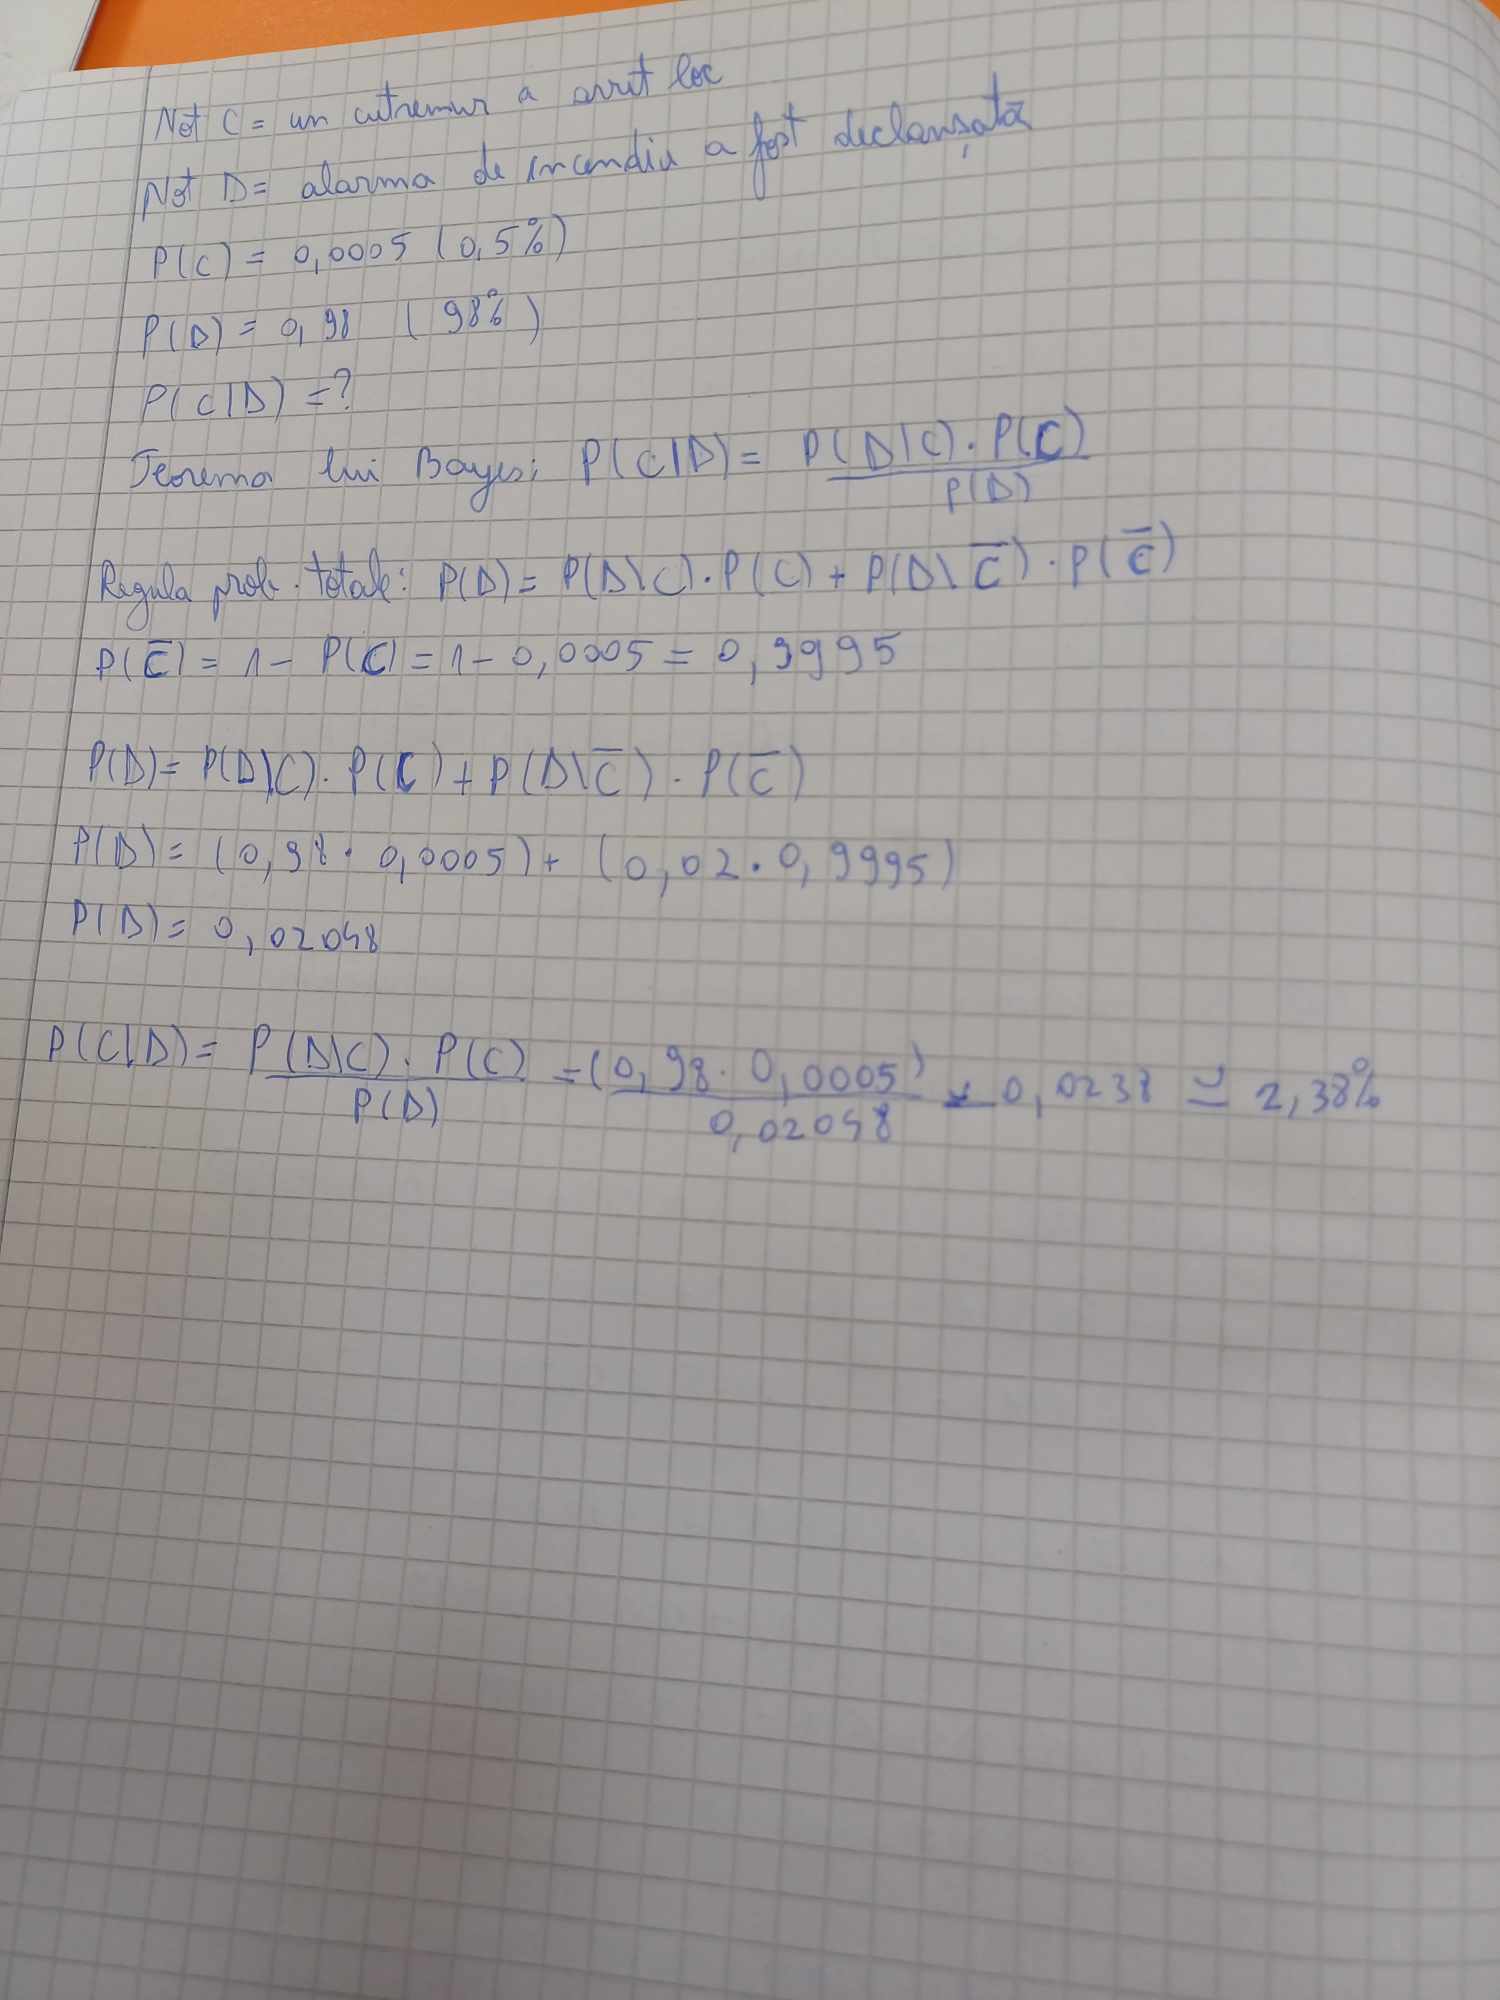 Not C = un cutremur a avut loc
Not D = alarma de incendiu a fost declanșată
P(C) = 0,0005 (0,5%)
P(D) = 0,98 (98%)
P(C|D) = ?
Teorema lui Bayes: P(C|D) = P(D|C) · P(C) / P(D)
Regula prob. totale: P(D) = P(D\C) · P(C) + P(D\C̅) · P(C̅)
P(C̅) = 1 - P(C) = 1 - 0,0005 = 0,9995
P(D) = P(D\C) · P(C) + P(D\C̅) · P(C̅)
P(D) = (0,98 · 0,0005) + (0,02 · 0,9995)
P(D) = 0,02048
P(C|D) = P(D\C) · P(C) / P(D) = (0,98 · 0,0005) / 0,02048 = 0,0238 ≃ 2,38%